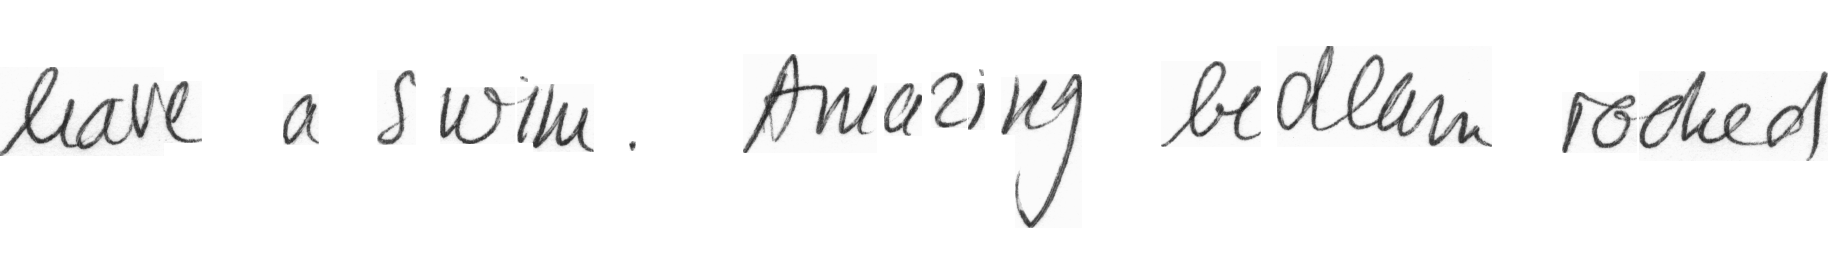 have a swim. Amazing bedlam rocked